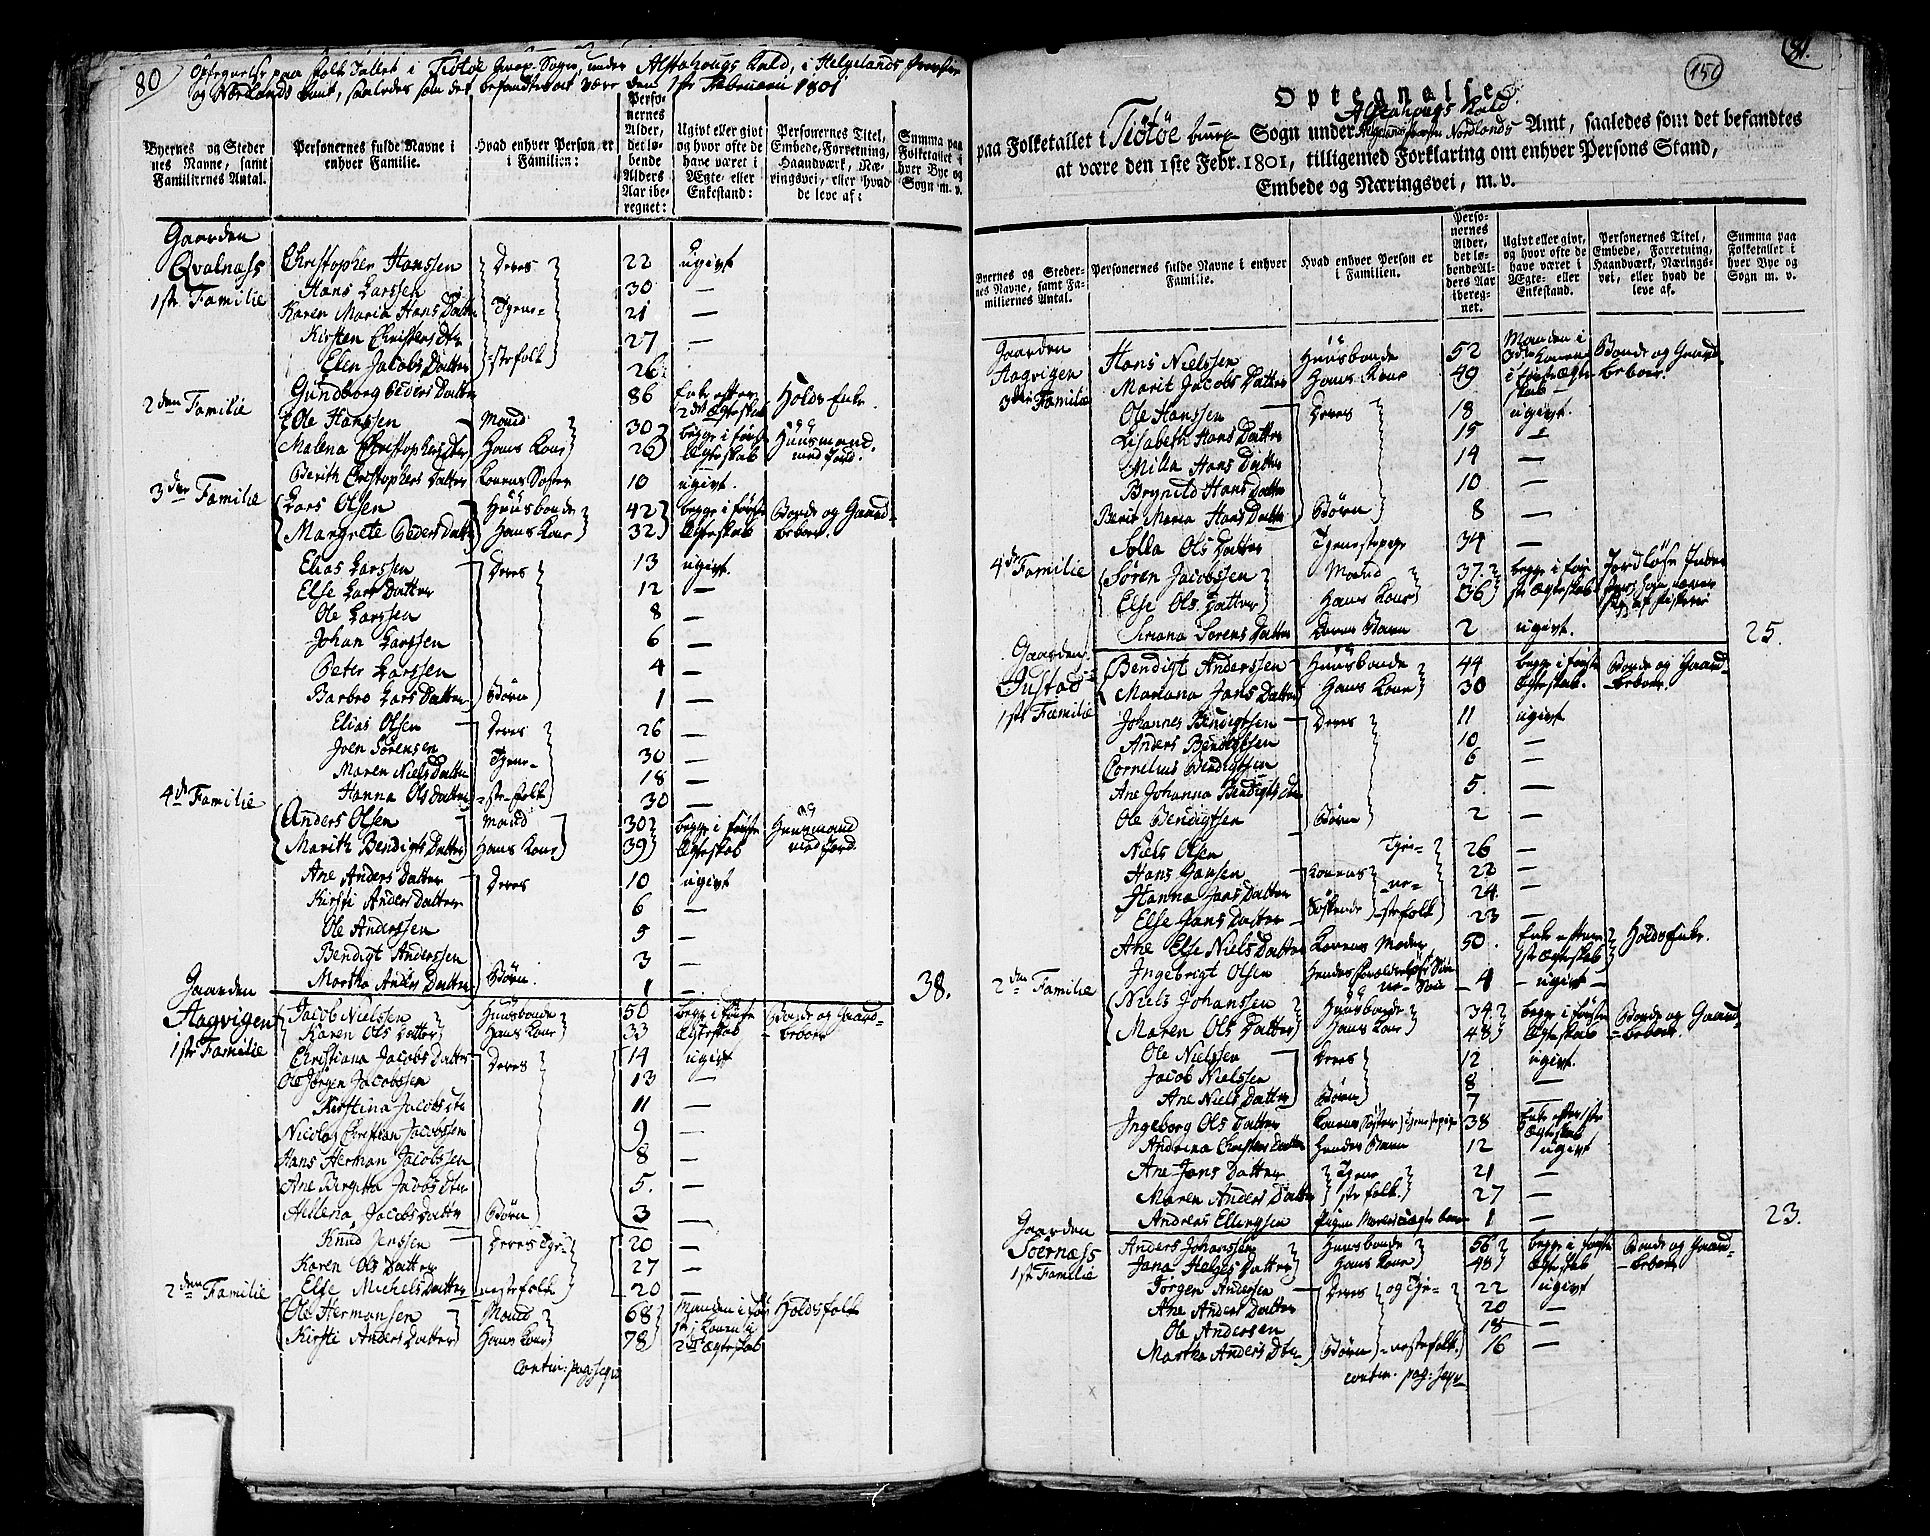 80
Optegnelse paa Folke Tallet i Tiötöe Sogn under Alstahougs Kald, i Helgelands
og Nordlands Amt, saaledes som det befandtes at være den 1ste Februarii 1801
Byernes og Steder
nes Navne, samt
Familiernes Antal.
Personernes fulde Navne i
enhver Familie.
Hvad enhver Person er
i Familien:
Perso-
nernes
Alder,
det lø-
bende
Alders
Aar ibe-
regnet:
Ugivt eller givt
og hvor ofte de
have været i
Ægte- eller
Enkestand:
Personernes Titel,
Embede, Forretning,
Haandværk, Næ-
ringsvei, eller hvad
de leve af:
Summa paa
Folketallet i
hver Bye og
Sogn m. v.
Gaarden
Qvalnæss Christopher Hanssen Deres 22 ugivt
1ste Familie Hans Larssen 30 —
Karen Maria Hans Datter Tjene- 21 —
Kirsten Christens Dtr 27 —
Elen Jacobs Datter -stefolk 26
Gundborg Peders Datter 86 Enke efter 2det Ægteskab Holds Enke.
2den Familie Ole Hanssen Mand 30 begge i første Huusmand
Malena Christophers Dtr Hans Kone 26 Ægteskab med Jord.
Berith Christophers Datter Konens Søster 10 ugivt.
3die Familie Lars Olsen Huusbonde 42 begge i første Bonde og Gaard
Margrete Peders Datter Hans Kone 32 Ægteskab beboer.
Elias Larssen Deres 13 ugivt.
Else Lars Datter 12 —
Ole Larssen 8 —
Johan Larssen 6 —
Peter Larssen 4 —
Barbro Lars Datter Børn 1 —
Elias Olsen Deres 26 —
Joen Sørensen 30 —
Maren Niels Datter Tjene- 18 —
Hanna Ols Datter -stefolk 30 —
4de Familie Anders Olsen Mand 30 begge i første Huusmand
Marith Bendigts Datter Hans Kone 39 Ægteskab med Jord.
Ane Anders Datter Deres 10 ugivt
Kirsti Anders Datter 6 —
Ole Anderssen 5 —
Bendigt Anderssen 3 —
Martha Anders Datter Børn. 1 — 38.
Gaarden
Hagvigen Jacob Nielssen Huusbonde 50 begge i første Bonde og Gaard-
Karen Ols Datter Hans Kone 33 Ægteskab -beboer
1ste Familie Christiana Jacobs Datter Deres 14 ugivt
Ole Jørgen Jacobssen 13 —
Kirstina Jacobs Dtr 11 —
Nicolay Christian Jacobssen 9 —
Hans Herman Jacobssen 8 —
Ane Birgitta Jacobs Dtr 5. —
Hellena Jacobs Datter Børn 3 —
Knud Jenssen Deres Tje- 20 —
Karen Ols Datter 27 —
Else Michels Datter nestefolk 20 —
2den Familie Ole Hermansen Mand 68 Manden i før Holdsfolk
Kirsti Anders Datter Hans Kone 78 ste, Konen i 2det Ægteskab
contin: pag: seqv
81.
150
Optegnelse
paa Folketallet i Tiötöe Sogn under Alstahougs Kald Nordlands Amt, saaledes som det befandtes
at være den 1ste Febr. 1801, tilligemed Forklaring om enhver Persons Stand,
Embede og Næringsvei, m. v.
Byernes og Steder-
nes Navne, samt Fa-
miliernes Antal.
Personernes fulde Navne i enhver
Familie.
Hvad enhver Person er
i Familien.
Perso-
nernes
Alder,
det lø-
bende Al-
ders Aar
ibereg-
net.
Ugivt eller givt,
og hvor ofte de
have været i
Ægte- eller
Enkestand.
Personernes Titel,
Embede, Forretning,
Haandværk, Nærings-
vei, eller hvad de
leve af.
Summa paa
Folketallet i
hver Bye og
Sogn m. v.
Gaarden Hans Nielssen Huusbonde 52 Manden i 2det Konen Bonde og Gaard
Hagvigen Marit Jacobs Datter Hans Kone 49 i første Ægteskab beboer.
3die Familie Ole Hanssen Deres 18 ugivt.
Lisabeth Hans Datter 15 —
Milla Hans Datter 14 —
Brynild Hans Datter 10 —
Berit Maria Hans Datter Børn 8 —
Solla Ols Datter Tjenestepige 34 —
4de Familie Søren Jacobssen Mand 37. begge i før- Jordløse
Else Ols Datter Hans Kone 36 ste Ægteskab
Siriana Sørens Datter Deres Barn 2 ugivt. 25.
Gaarden
Justad Bendigt Anderssen Huusbonde 44 begge i første Bonde og Gaard-
Mariana Jans Datter Hans Kone 30 Ægteskab. -beboer.
1ste Familie Johannes Bendigtsen Deres 11 ugivt
Anders Bendigtsen 10 —
Cornelius Bendigtsen 6 —
Ane Johanna Bendigts Dtr 5. —
Ole Bendigtsen Børn 2 —
Niels Olsen Tjene- 26 —
Hans Jansen Konens 22 —
Hanna Jans Datter -ne- 24 —
Else Jans Datter Søskende -stefolk 23 —
Ane Else Niels Datter Konens Moder 50. Enke efter 1ste Ægteskab Holds Enke.
Ingebrigt Olsen 4 — ugivt —
2den Familie Niels Johanssen Huusbonde 34 begge i første Bonde og Gaard-
Maren Ols Datter Hans Kone 48 Ægteskab -beboer.
Ole Nielssen Deres 12 ugivt.
Jacob Nielssen 8 —
Ane Niels Datter Børn 7 —
Ingeborg Ols Datter Konens Søster Tjenestepige 38 Enke efter 1ste Ægteskab
Andrina Christens Datter Hendes Barn 12 ugivt
Ane Jans Datter Tjene 21 —
Maren Anders Datter stefolk. 27 —
Andreas Ellingsen Pigen Marens uægte barn 1 — 23.
Gaarden
Søernæss Anders Johanssen Huusbonde 56 begge i første Bonde og Gaard-
Jana Helges Datter Hans Kone 48 Ægteskab -beboer
1ste Familie Jørgen Andersen Deres og Tje- 22 ugivt
Ane Anders Datter 20 —
Ole Andersen 18 —
Martha Anders Dtr Børn -nestefolk. 16 —
contin. pag: seqv